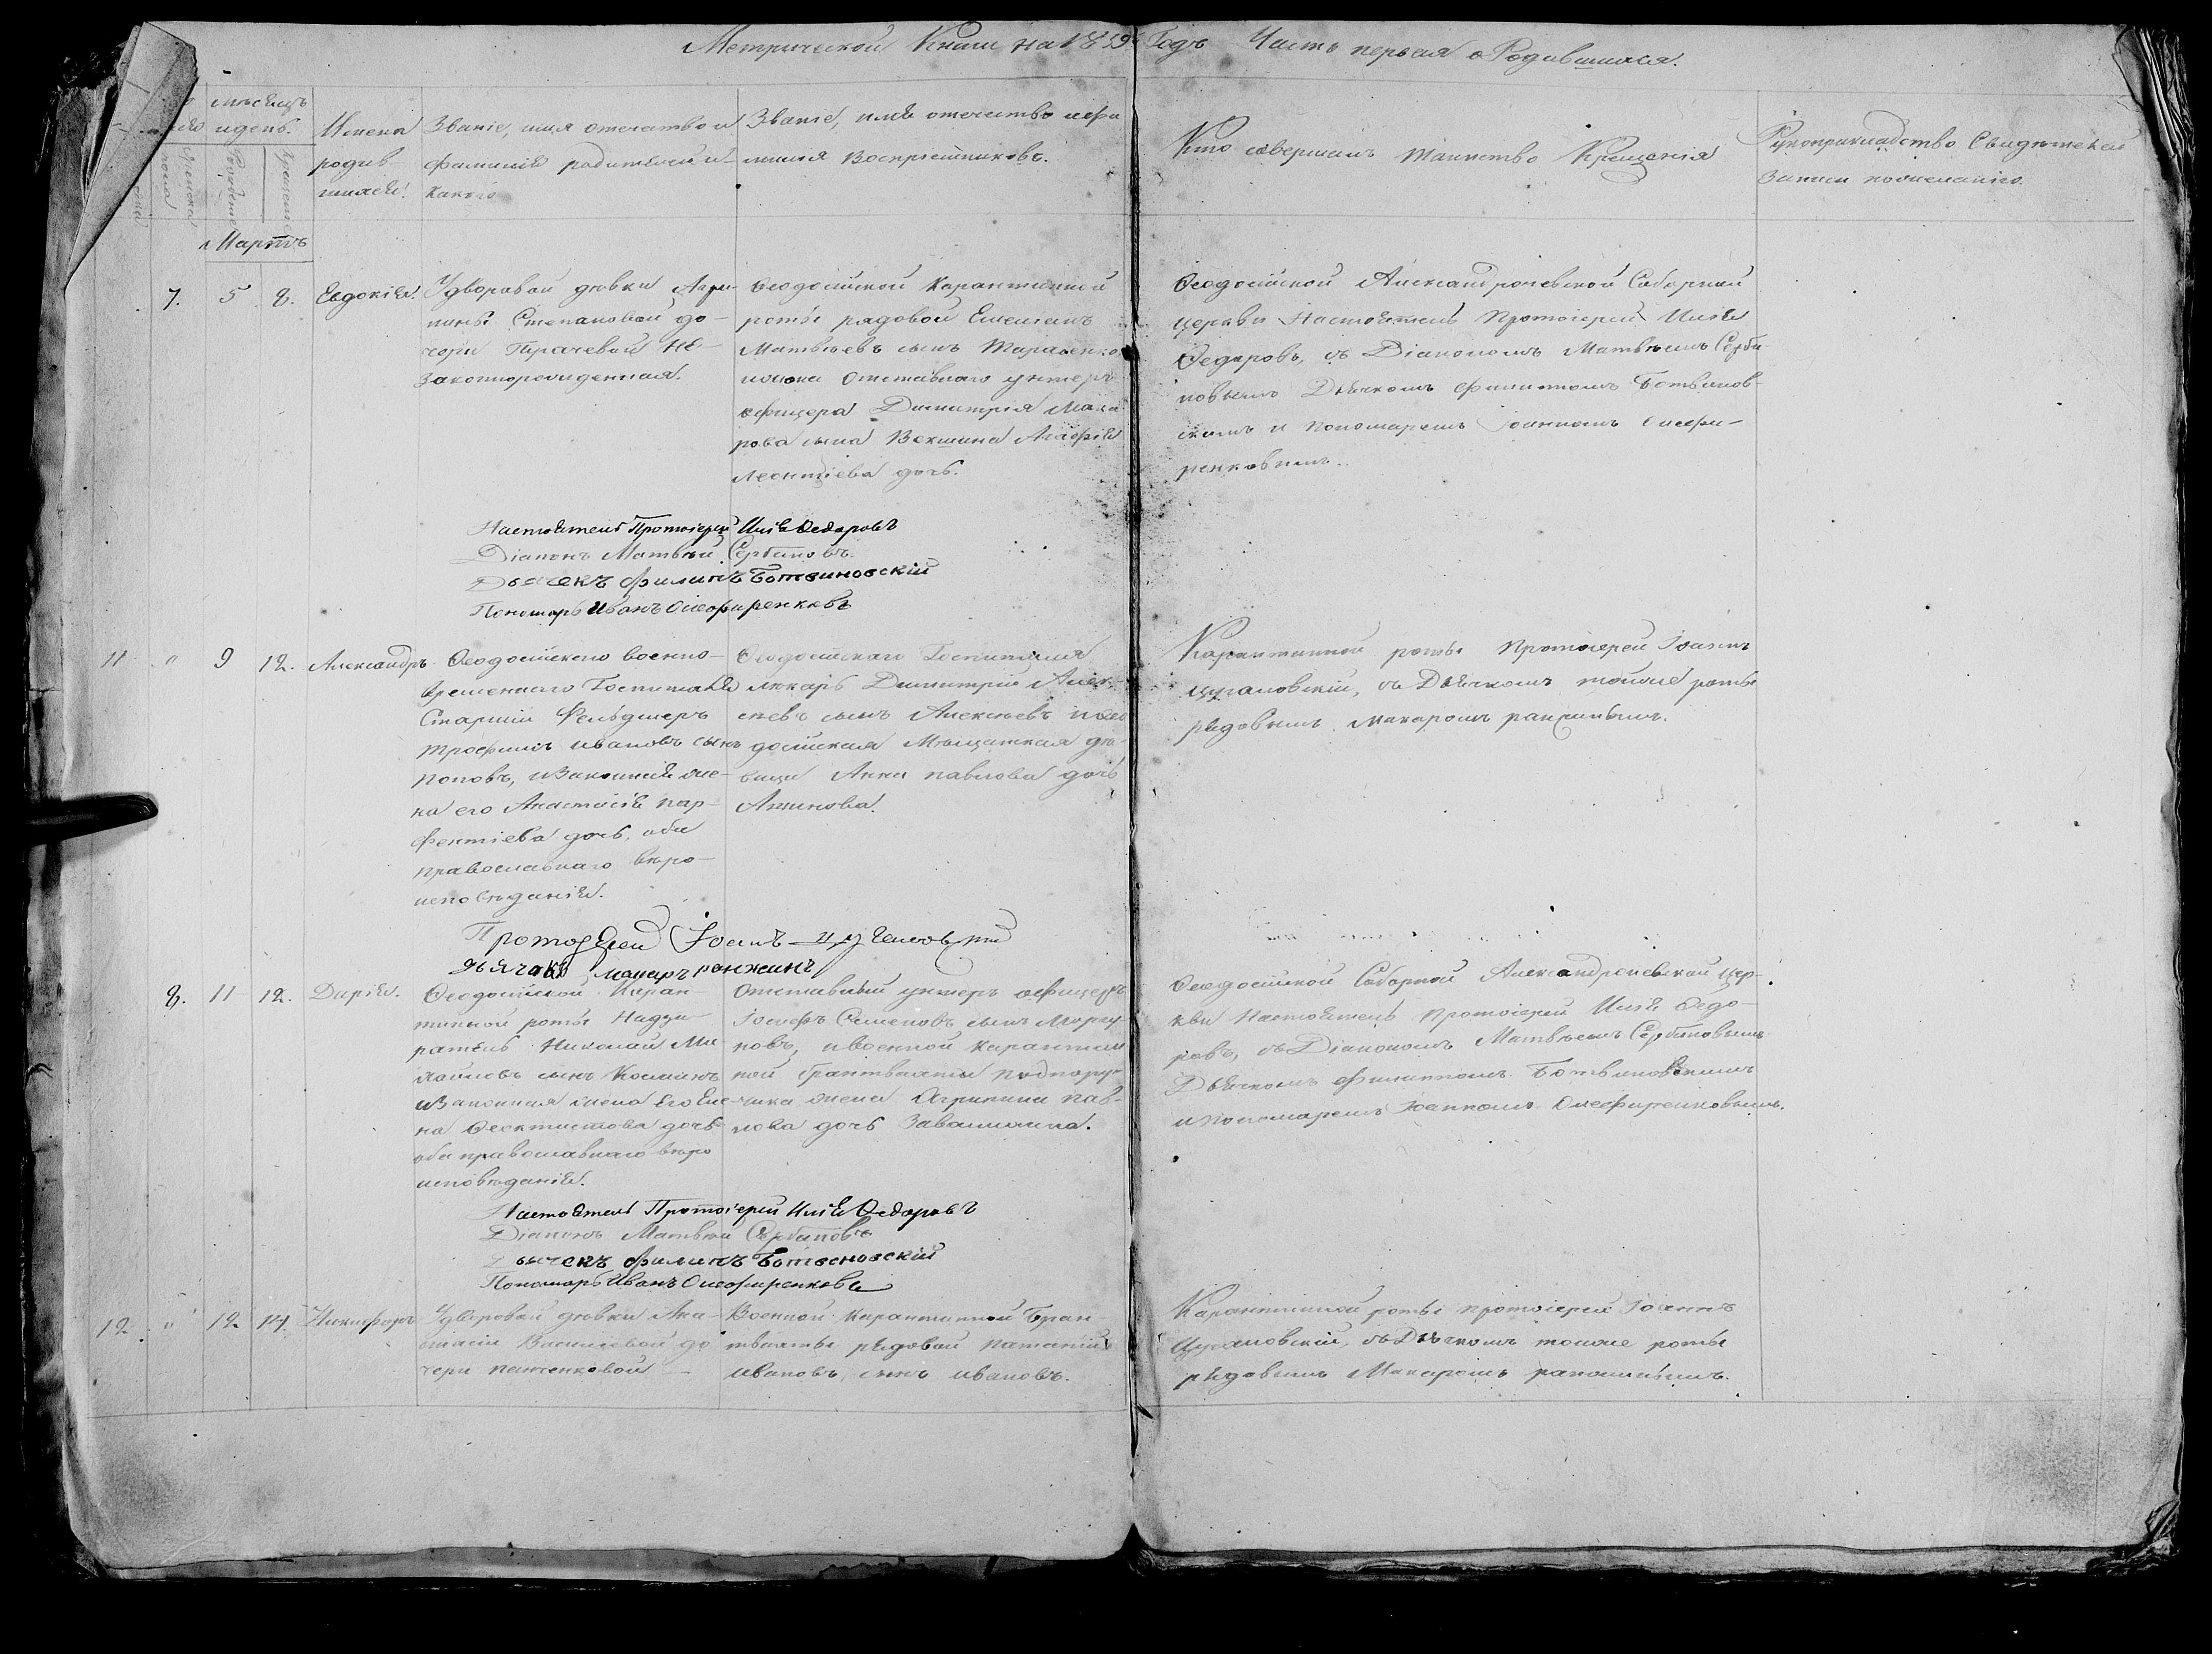 Метрической Книги на 1859 Годъ Часть первая о Родившихся.
мѣсяцъ
и день.
Имена
родив
шихся.
Званіе, имя отечество и
фамилія родителей и
какого
Званіе, имя отечество и фа
милія Воспріемниковъ.
Кто совершалъ таинство Крещенія
Рукоприкладство Свидѣтелей
Записи по желанію.
Женска
пола
Рожденіе
Крещеніе
Мартъ
7. 5 8. Евдокія.
У дворовой дѣвки Агри-
пины Степановой до-
чери Ткачевой не-
законнорожденная.
Ѳеодосійской Карантинной
роты рядовой Емельянъ
Матвѣевъ сынъ Тарасенко,
и жена отставнаго унтеръ
офицера Димитрія Мака
рова сына Векшина Агафія
Леонтіева дочь.
Ѳеодосійской Александроневской Соборной
церкви Настоятель Протоіерей Илія
Ѳедоровъ, съ Діакономъ Матвѣемъ Серби-
новымъ Дьячкомъ Филиппомъ Ботвинов-
скимъ и пономаремъ Іоанномъ Олефи-
ренковымъ.
Настоятель Протоіерей Илія Ѳедоровъ
Діаконъ Матвѣй Сербиновъ.
Дьячекъ Филипъ Ботвиновскій
Пономарь Иванъ Олефиренковъ
11 " 9 12. Александръ
Ѳеодосійскаго военно-
временнаго Госпиталя
Старшій Фельдшеръ
Трофимъ Ивановъ сынъ
Поповъ, и законная же-
на его Анастасія Пар-
фентіева дочь, оба
православнаго вѣро-
исповѣданія.
Ѳеодосійскаго Госпиталя
лекарь Димитрій Алек-
сѣевъ сынъ Алексѣевъ и Ѳео
досійская Мѣщанская дѣ-
вица Анна Павлова дочь
Карантинной роты Протоіерей Іоаннъ
Цугановскій, съ Дьячкомъ тойже роты
рядовымъ Макаромъ
Протоіерей Іоаннъ
дьячокъ Макаръ
8. 11 12. Дарія.
Ѳеодосійской Каран-
тинной роты Надзи-
ратель Николай Ми
хайловъ сынъ Косминъ
и законная жена его Еле-
на Ѳеоктистова дочь
оба православнаго вѣро
исповѣданія.
Отставный унтеръ офицеръ
Іосифъ Семеновъ сынъ Маргу-
новъ, и военной карантин
ной брантвахты подпору-
чика жена Агрипина Пав-
лова дочь Завалишина.
Ѳеодосійской Соборной Александроневской цер-
кви Настоятель Протоіерей Илія Ѳедо-
ровъ, съ Діакономъ Матвѣемъ Сербиновымъ
Дьячкомъ Филиппомъ Ботвиновскимъ
и пономаремъ Іоанномъ Олефиренковымъ.
Настоятель Протоіерей Илія Ѳедоровъ
Діаконъ Матвѣй Сербиновъ
Дьячекъ Филипъ Ботвиновскій
Пономарь Иванъ Олефиренковъ
12. " 12 14. Никифоръ
У дворовой дѣвки Ана-
стасіи Васильевой до
чери Панченковой
Военной Карантинной Бран-
твахты рядовой
Ивановъ, сынъ Ивановъ.
Карантинной роты протоіерей Іоаннъ
Цугановскій, съ Дьячкомъ тойже роты
рядовымъ Макаромъ